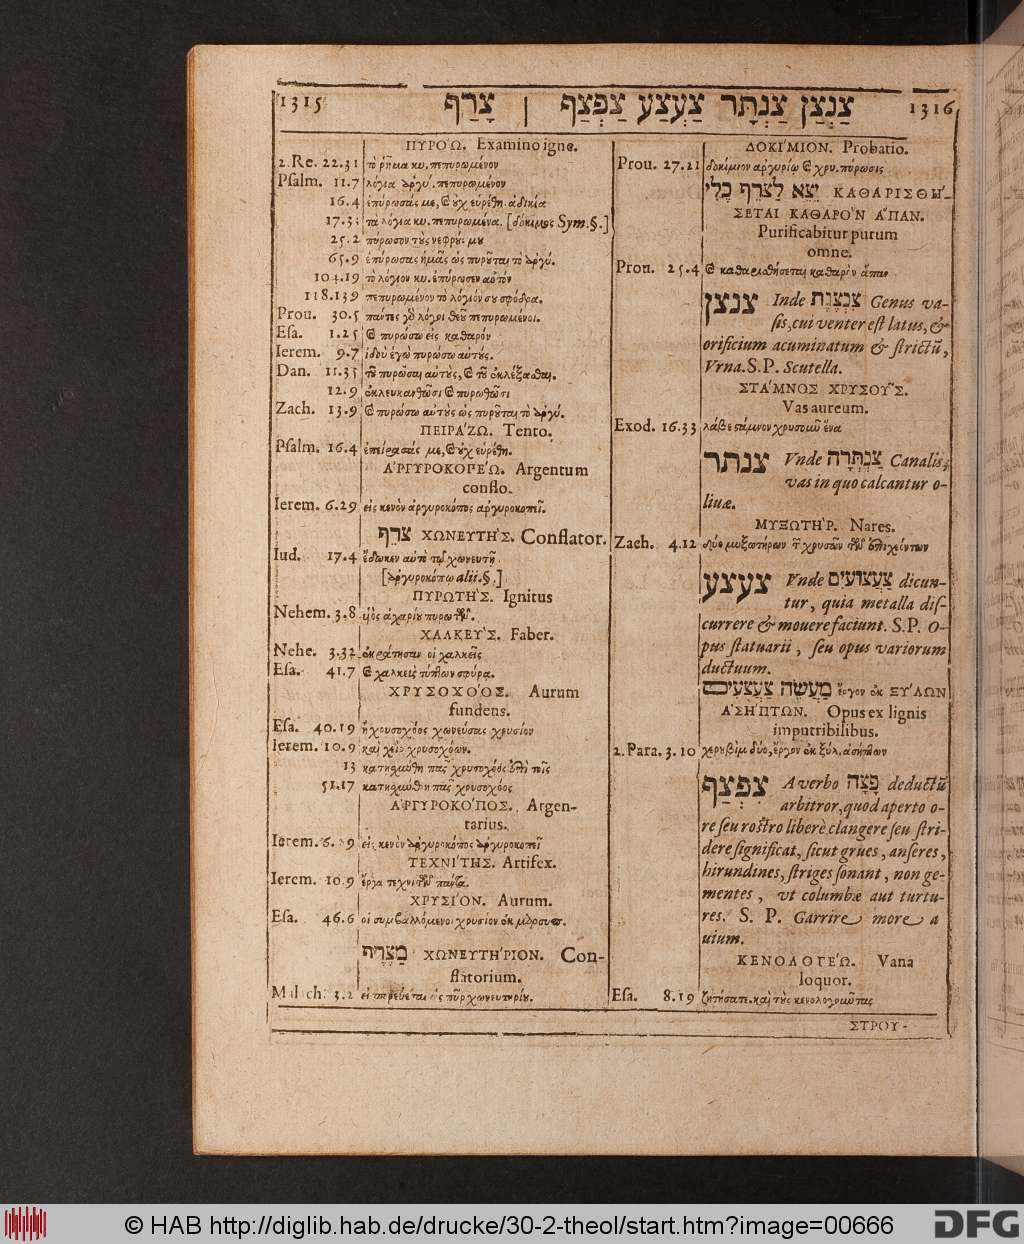 1315 צָרַף | צַנְצַן צַנְתָּר צַעְצַע צַפְצַף 1316
ΠΥΡΟ´Ω. Examino igne.
2.Re. 22.31 τὸ ῥῆμα κυ. πεπυρωμένον
Psalm. 11.7 λόγια ἀργύ. πεπυρωμένον
16.4 ἐπύρωσάς με, ϗ οὐχ εὑρέθη ἀδικία
17.3 τὰ λόγια κυ. πεπυρωμένα. [δόκιμος Sym.§.]
25.2 πύρωσον τοὺς νεφρούς μου
65.9 ἐπύρωσας ἡμᾶς ὡς πυροῦται τὸ ἀργύ.
104.19 τὸ λόγιον κυ. ἐπύρωσεν αὐτόν
118.139 πεπυρωμένον τὸ λόγιόν σου σφόδρα.
Prou. 30.5 πάντες γὸ λόγοι θεοῦ πεπυρωμένοι.
Esa. 1.25 ϗ πυρώσω εἰς καθαρόν
Ierem. 9.7 ἰδοὺ ἐγὼ πυρώσω αὐτούς.
Dan. 11.35 τοῦ πυρῶσαι αὐτοὺς, ϗ τοῦ ἐκλέξασθαι.
12.9 ἐκλευκανθῶσι ϗ πυρωθῶσι
Zach. 13.9 ϗ πυρώσω αὐτοὺς ὡς πυροῦται τὸ ἀργύ.
ΠΕΙΡΑ´ΖΩ. Tento.
Psalm. 16.4 ἐπείρασάς με, ϗ οὐχ εὑρέθη.
Α᾿ΡΓΥΡΟΚΟΠΕ´Ω. Argentum
conflo.
Ierem. 6.29 εἰς κενὸν ἀργυροκόπος ἀργυροκοπεῖ.
צֹרֵף ΧΩΝΕΥΤΗ´Σ. Conflator.
Iud. 17.4 ἔδωκεν αὐτὸ τῷ χωνευτῇ
[ἀργυροκόπῳ alii.§.]
ΠΥΡΩΤΗ´Σ. Ignitus
Nehem. 3.8
ΧΑΛΚΕΥ´Σ. Faber.
Nehe. 3.32 ἐκράτησαν οἱ χαλκεῖς
Esa. 41.7 ϗ χαλκεὺς τύπτων σφύρα.
ΧΡΥΣΟΧΟ´ΟΣ. Aurum
fundens.
Esa. 40.19 ἢ χρυσοχόος χωνεύσας χρυσίον
Ierem. 10.9 καὶ χεὶρ χρυσοχόων.
13 κατῃσχύνθη πᾶς χρυσοχόος ἐπὶ τοῖς
51.17 κατῃσχύνθη πᾶς χρυσοχόος
Α᾿ΡΓΥΡΟΚΟ´ΠΟΣ. Argen-
tarius.
Ierem. 6.29 εἰς κενὸν ἀργυροκόπος ἀργυροκοπεῖ
ΤΕΧΝΙ´ΤΗΣ. Artifex.
Ierem. 10.9 ἔργα τεχνιτῶν πάντα.
ΧΡΥΣΙ´ΟΝ. Aurum.
Esa. 46.6 οἱ συμβαλλόμενοι χρυσίον ἐκ μαρσυπ.
מַצְרֵף ΧΩΝΕΥΤΗ´ΡΙΟΝ. Con-
flatorium.
Malach. 3.2 εἰσπορεύεται ὡς πῦρ χωνευτηρίου.
ΔΟΚΙ´ΜΙΟΝ. Probatio.
Prou. 27.21 δοκίμιον ἀργυρίῳ ϗ χρυ. πύρωσις
יֵצֵא לַצֹּרֵף כֶּלִי ΚΑΘΑΡΙΣΘΗ´-
ΣΕΤΑΙ ΚΑΘΑΡΟ`Ν Α῞ΠΑΝ.
Purificabitur purum
omne.
Prou. 25.4 ϗ καθαρισθήσεται καθαρὸν ἅπαν
צנצן Inde צִנְצֶנֶת Genus va-
sis, cui venter est latus, &
orificium acuminatum & strictũ,
Vrna. S.P. Scutella.
ΣΤΑ´ΜΝΟΣ ΧΡΥΣΟΥ῀Σ.
Vas aureum.
Exod. 16.33 λάβε στάμνον χρυσοῦν ἕνα
צנתר Vnde צַנְתְּרָה Canalis,
vas in quo calcantur o-
liuæ.
ΜΥΞΩΤΗ´Ρ. Nares.
Zach. 4.12 δύο μυξωτήρων τ῀ χρυσῶν τῶν ἐπιχεόντων
צעצע Vnde צַעֲצֻעִים dicun-
tur, quia metalla dis-
currere & mouere faciunt. S.P. O-
pus statuarii, seu opus variorum
ductuum.
מַעֲשֵׂה צַעֲצֻעִים ἔργον ἐκ ΞΥ´ΛΩΝ
Α᾿ΣΗ´ΠΤΩΝ. Opus ex lignis
imputribilibus.
2.Para. 3.10 χερυβὶμ δύο, ἔργον ἐκ ξύλ. ἀσήπτων
צִפְצֵף A verbo פָּצָה deductũ
arbitror, quod aperto o-
re seu rostro liberè clangere seu stri-
dere significat, sicut grues, anseres,
hirundines, striges sonant, non ge-
mentes, vt columbæ aut turtu-
res. S. P. Garrire more a
uium.
ΚΕΝΟΛΟΓΕ´Ω. Vana
loquor.
Esa. 8.19 ζητήσατε. καὶ τοὺς κενολογοῦντας
ΣΤΡΟΥ-
© HAB http://diglib.hab.de/drucke/30-2-theol/start.htm?image=00666 DFG